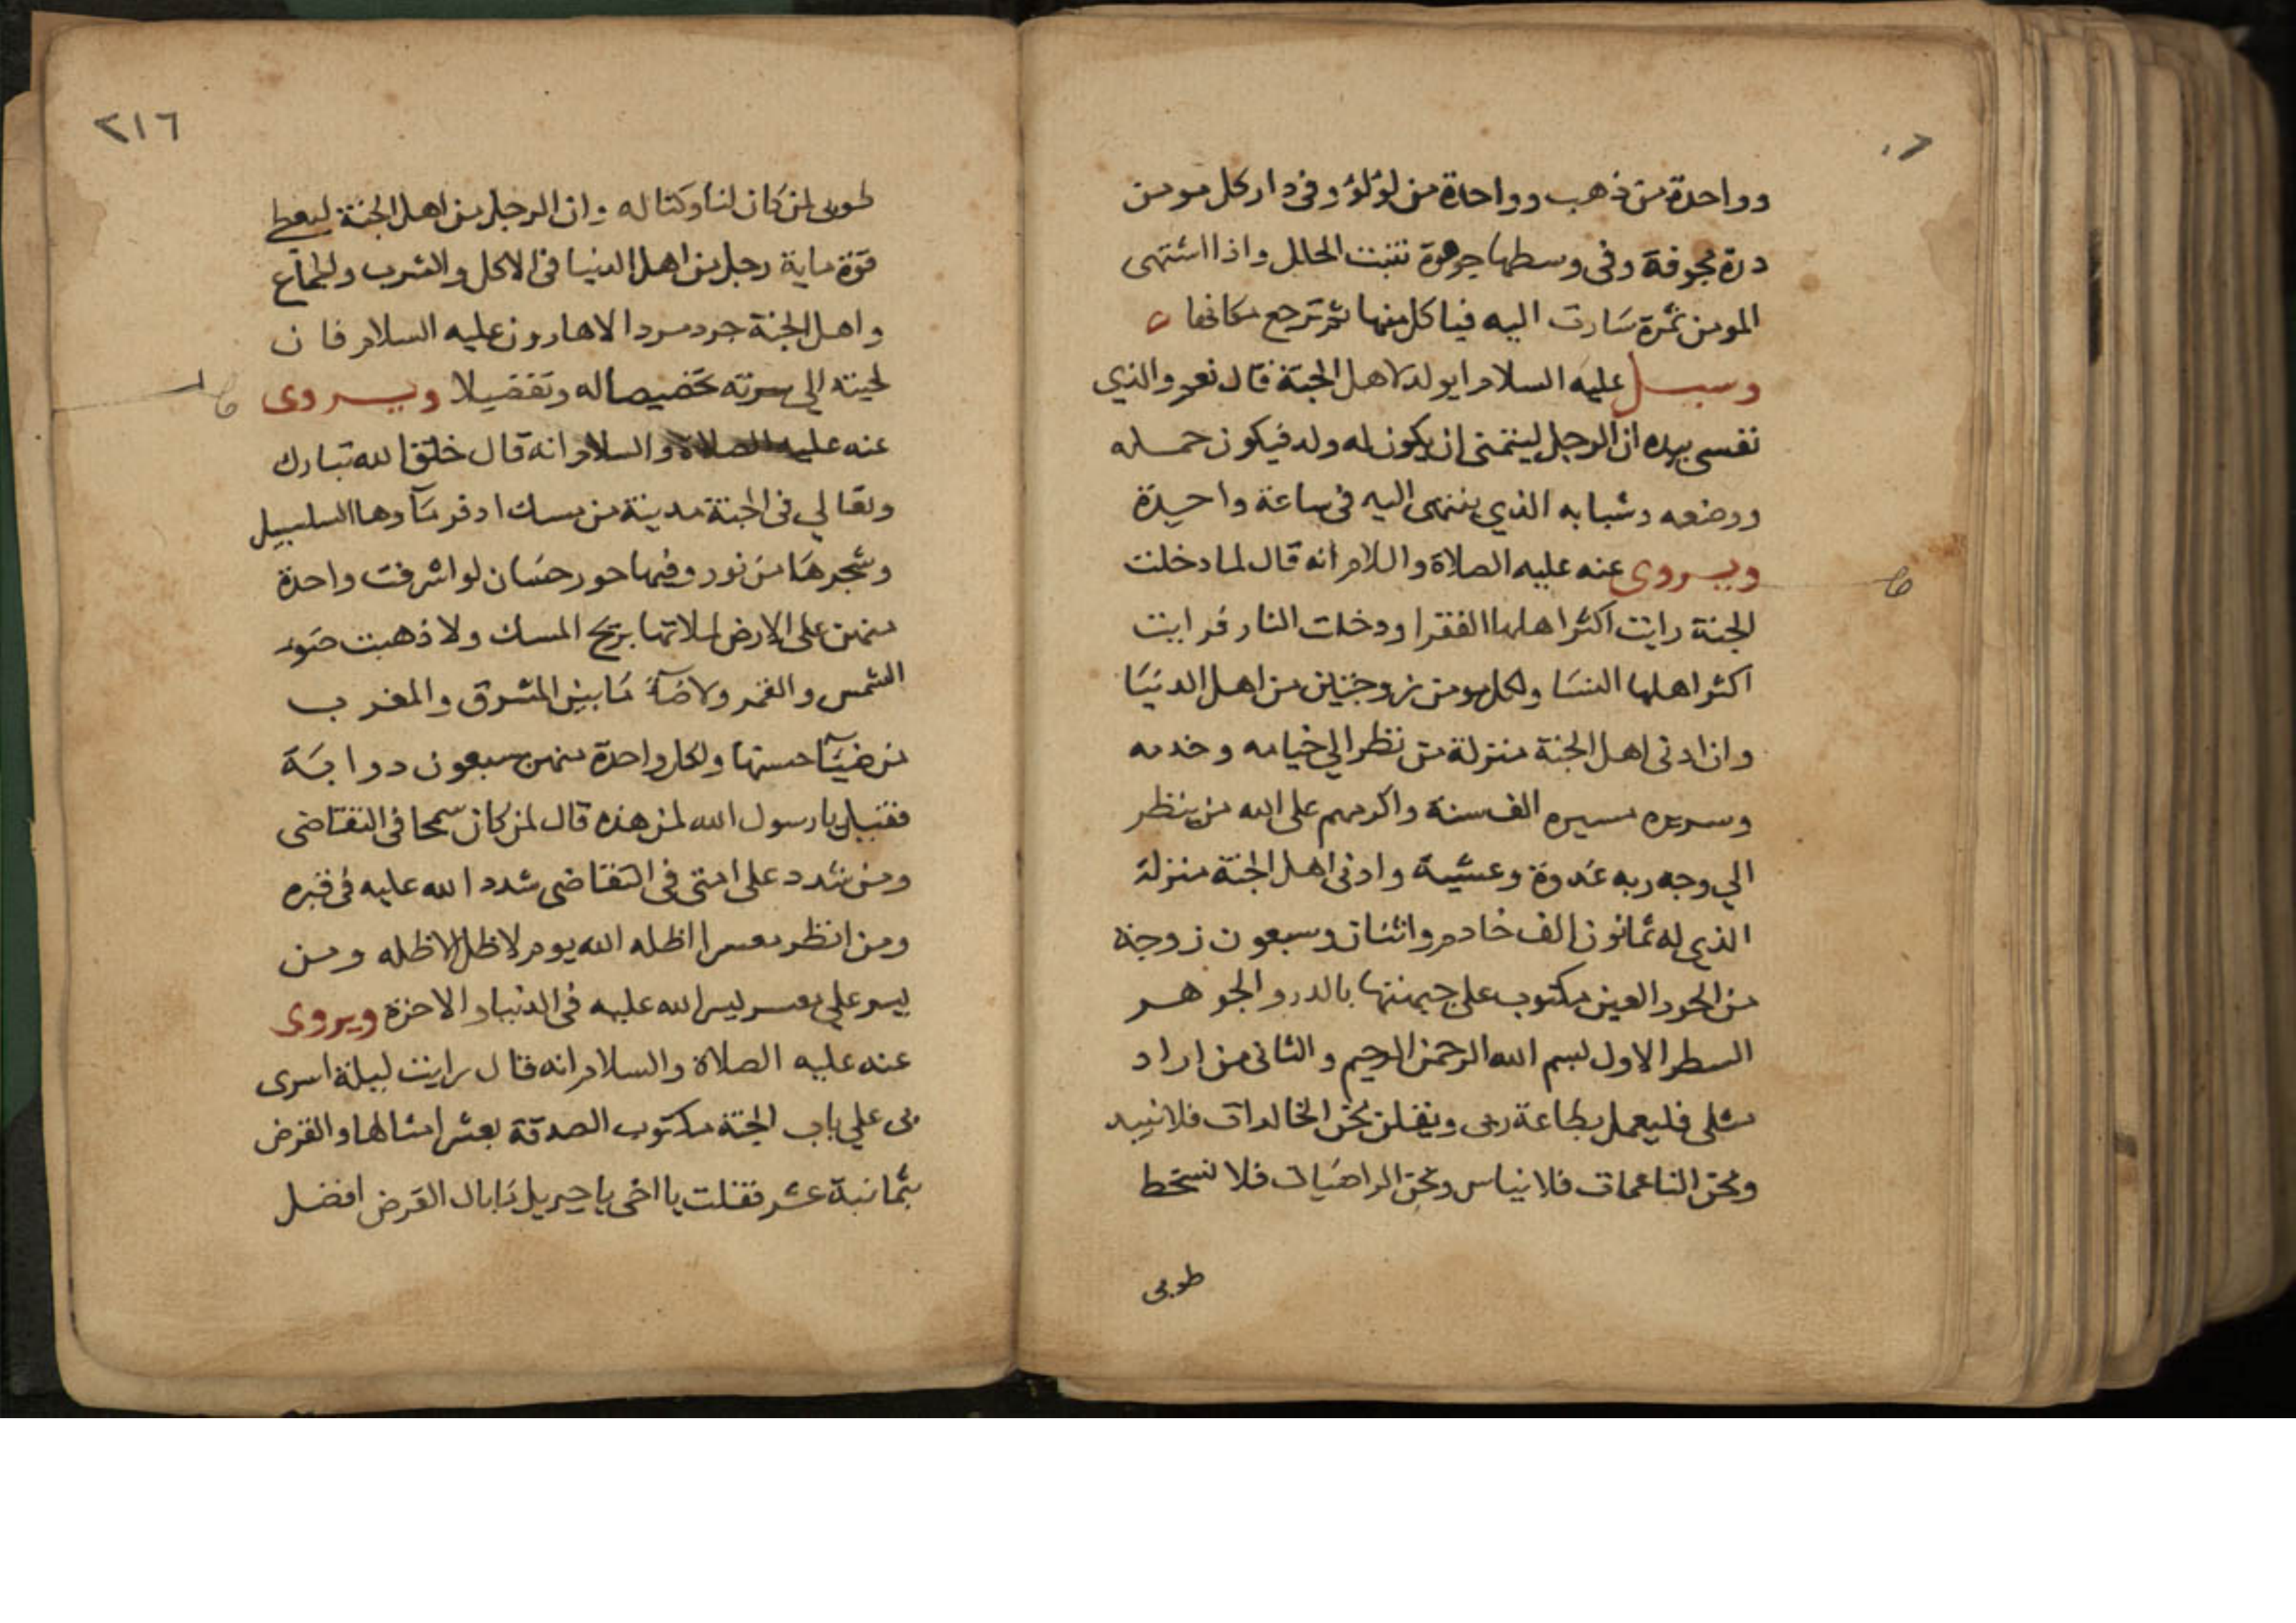 وواحدة من ذهب وواحدة من لؤلؤ وفى دار كل مومن
درة مجوفة وفى وسطها جوهرة تنبت الحلل واذا اشتهى
المومن ثمرة سارت اليه فياكل منها ثم ترجع مكانها
وسيل عليه السلام ايولد لاهل الجنة قال نعم والذي
نفسى بيده ان الرجل ليتمنى ان يكون له ولد فيكون حمله
ووضعه وشبابه الذي ينتهى اليه فى ساعة واحدة
ويروى عنه عليه الصلاة والسلام انه قال لما دخلت
الجنة رايت اكثر اهلها الفقرا ودخلت النار فرايت
اكثر اهلها النسا ولكل مومن زوجتين من اهل الدنيا
وان ادنى اهل الجنة منزلة من نظر الي خيامه وخدمه
وسرره مسيره الف سنة واكرمهم على الله من ينظر
الي وجه ربه غدوة وعشية وادنى اهل الجنة منزلة
الذي له ثمانون الف خادم واثنان وسبعون زوجة
من الحور العين مكتوب على جبهنتها بالدر والجوهر
السطر الاول بسم الله الرحمن الرحيم والثانى من اراد
مثلى فليعمل بطاعة ربى ويقلن نحن الخالدات فلا نبيد
ونحن الناعمات فلا نياس ونحن الراضيات فلا نسخط
طوبى
٢١٦
طوبى لمن كان لنا وكنا له وان الرجل من اهل الجنة ليعطى
قوة ماية رجل من اهل الدنيا فى الاكل والشرب والجماع
واهل الجنة جرد مرد الا هارون عليه السلام فان
لحيته الي سرته تخصيصا له وتفضيلا ويروى
عنه عليه الصلاة والسلام انه قال خلق الله تبارك
وتعالي فى الجنة مدينة من مسك ادفر ماوها السلسبيل
وشجرها من نور وفيها حور حسان لو اشرفت واحدة
منهن على الارض لملاتها بريح المسك ولاذهبت ضو
الشمس والقمر ولاضآ ما بين المشرق والمغرب
من ضيآ حسنها ولكل واحدة منهن سبعون دوابة
فقيل يا رسول الله لمن هذه قال لمن كان سمحا فى التقاضى
ومن شدد على امتى فى التقاضى شدد الله عليه فى قبره
ومن انظر معسرا اظله الله يوم لا ظل الا ظله ومن
يسر علي معسر يسر الله عليه فى الدنيا والاخرة ويروى
عنه عليه الصلاة والسلام انه قال رايت ليلة اسرى
بى علي باب الجنة مكتوب الصدقة بعشر امثالها والقرض
بثمانية عشر فقلت يا اخى يا جبريل ما بال القرض افضل